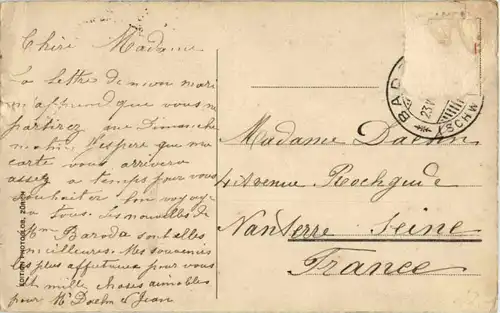 Chère Madame
La lettre de mon mari
m'apprend que vous ne
partirez que Dimanche
matin. J'espère que ma
carte vous arrivera
assez à temps pour vous
souhaiter bon voyage
à tous. Les nouvelles de
Mme Baroda sont elles
meilleures. Mes souvenirs
les plus affectueux pour vous
et mille choses aimables
pour Mr Daehm et Jean
EDITION PHOTOGLOB, ZÜRICH
BAD
23.V
(SCHW
Madame Daehm
4 Avenue Rochegude
Nanterre Seine
France